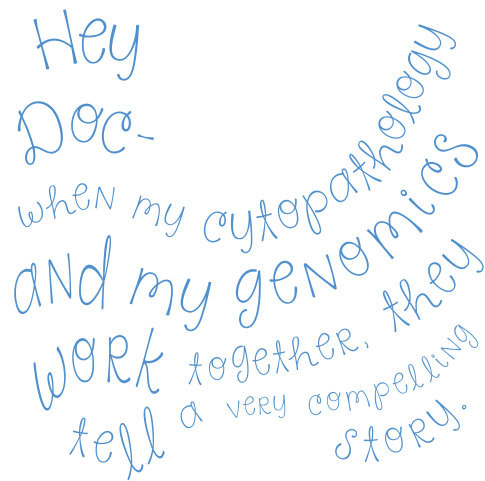 Hey
Doc-
when my cytopathology
and my genomics
work together, they
tell a very compelling
story.